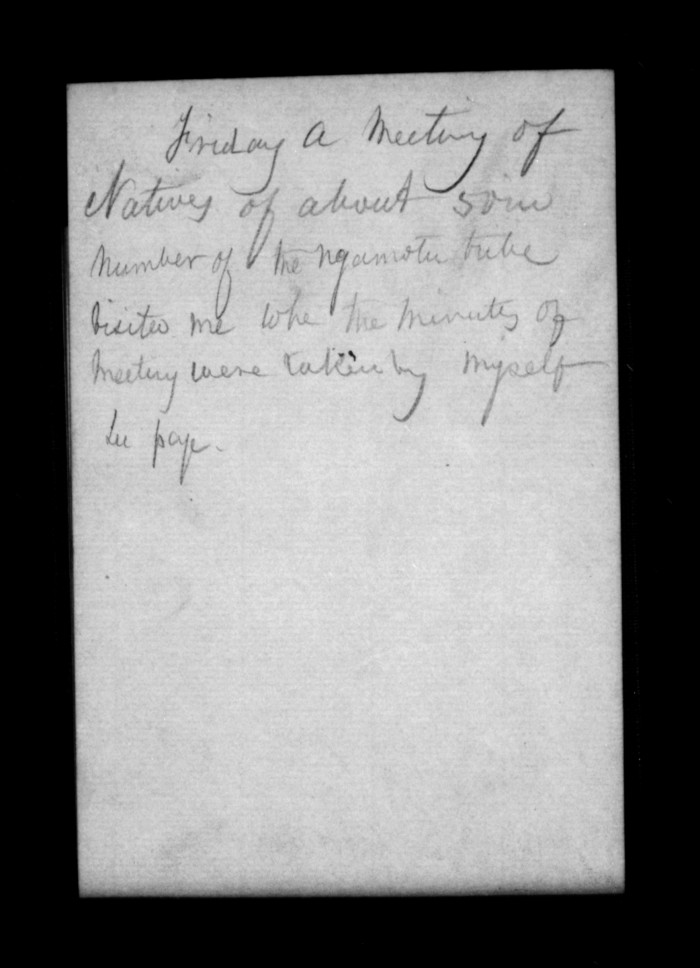 Friday A Meeting of
Natives of about 50 in
number of the Ngamotu tribe
visited me whe the minutes of
Meeting were taken by myself
See page.